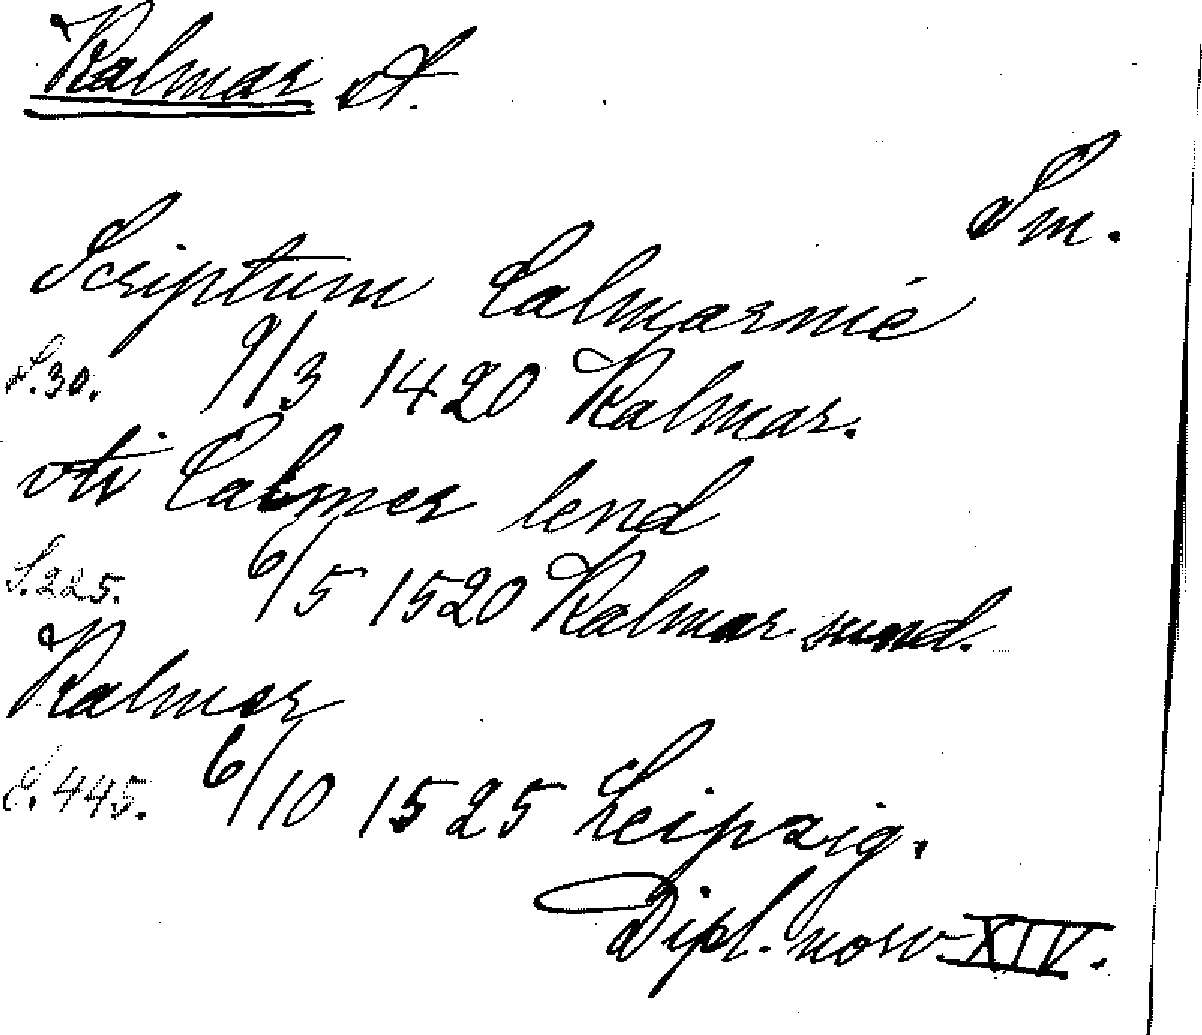 Kalmar st.
Sm.
Scriptum Calmarnie
S.30. 9/3 1420 Kalmar.
vti Calmer lend
S.225. 6/5 1520 Kalmar sund.
Kalmar
S.445. 6/10 1525 Leipzig.
Dipl. norv. XIV.